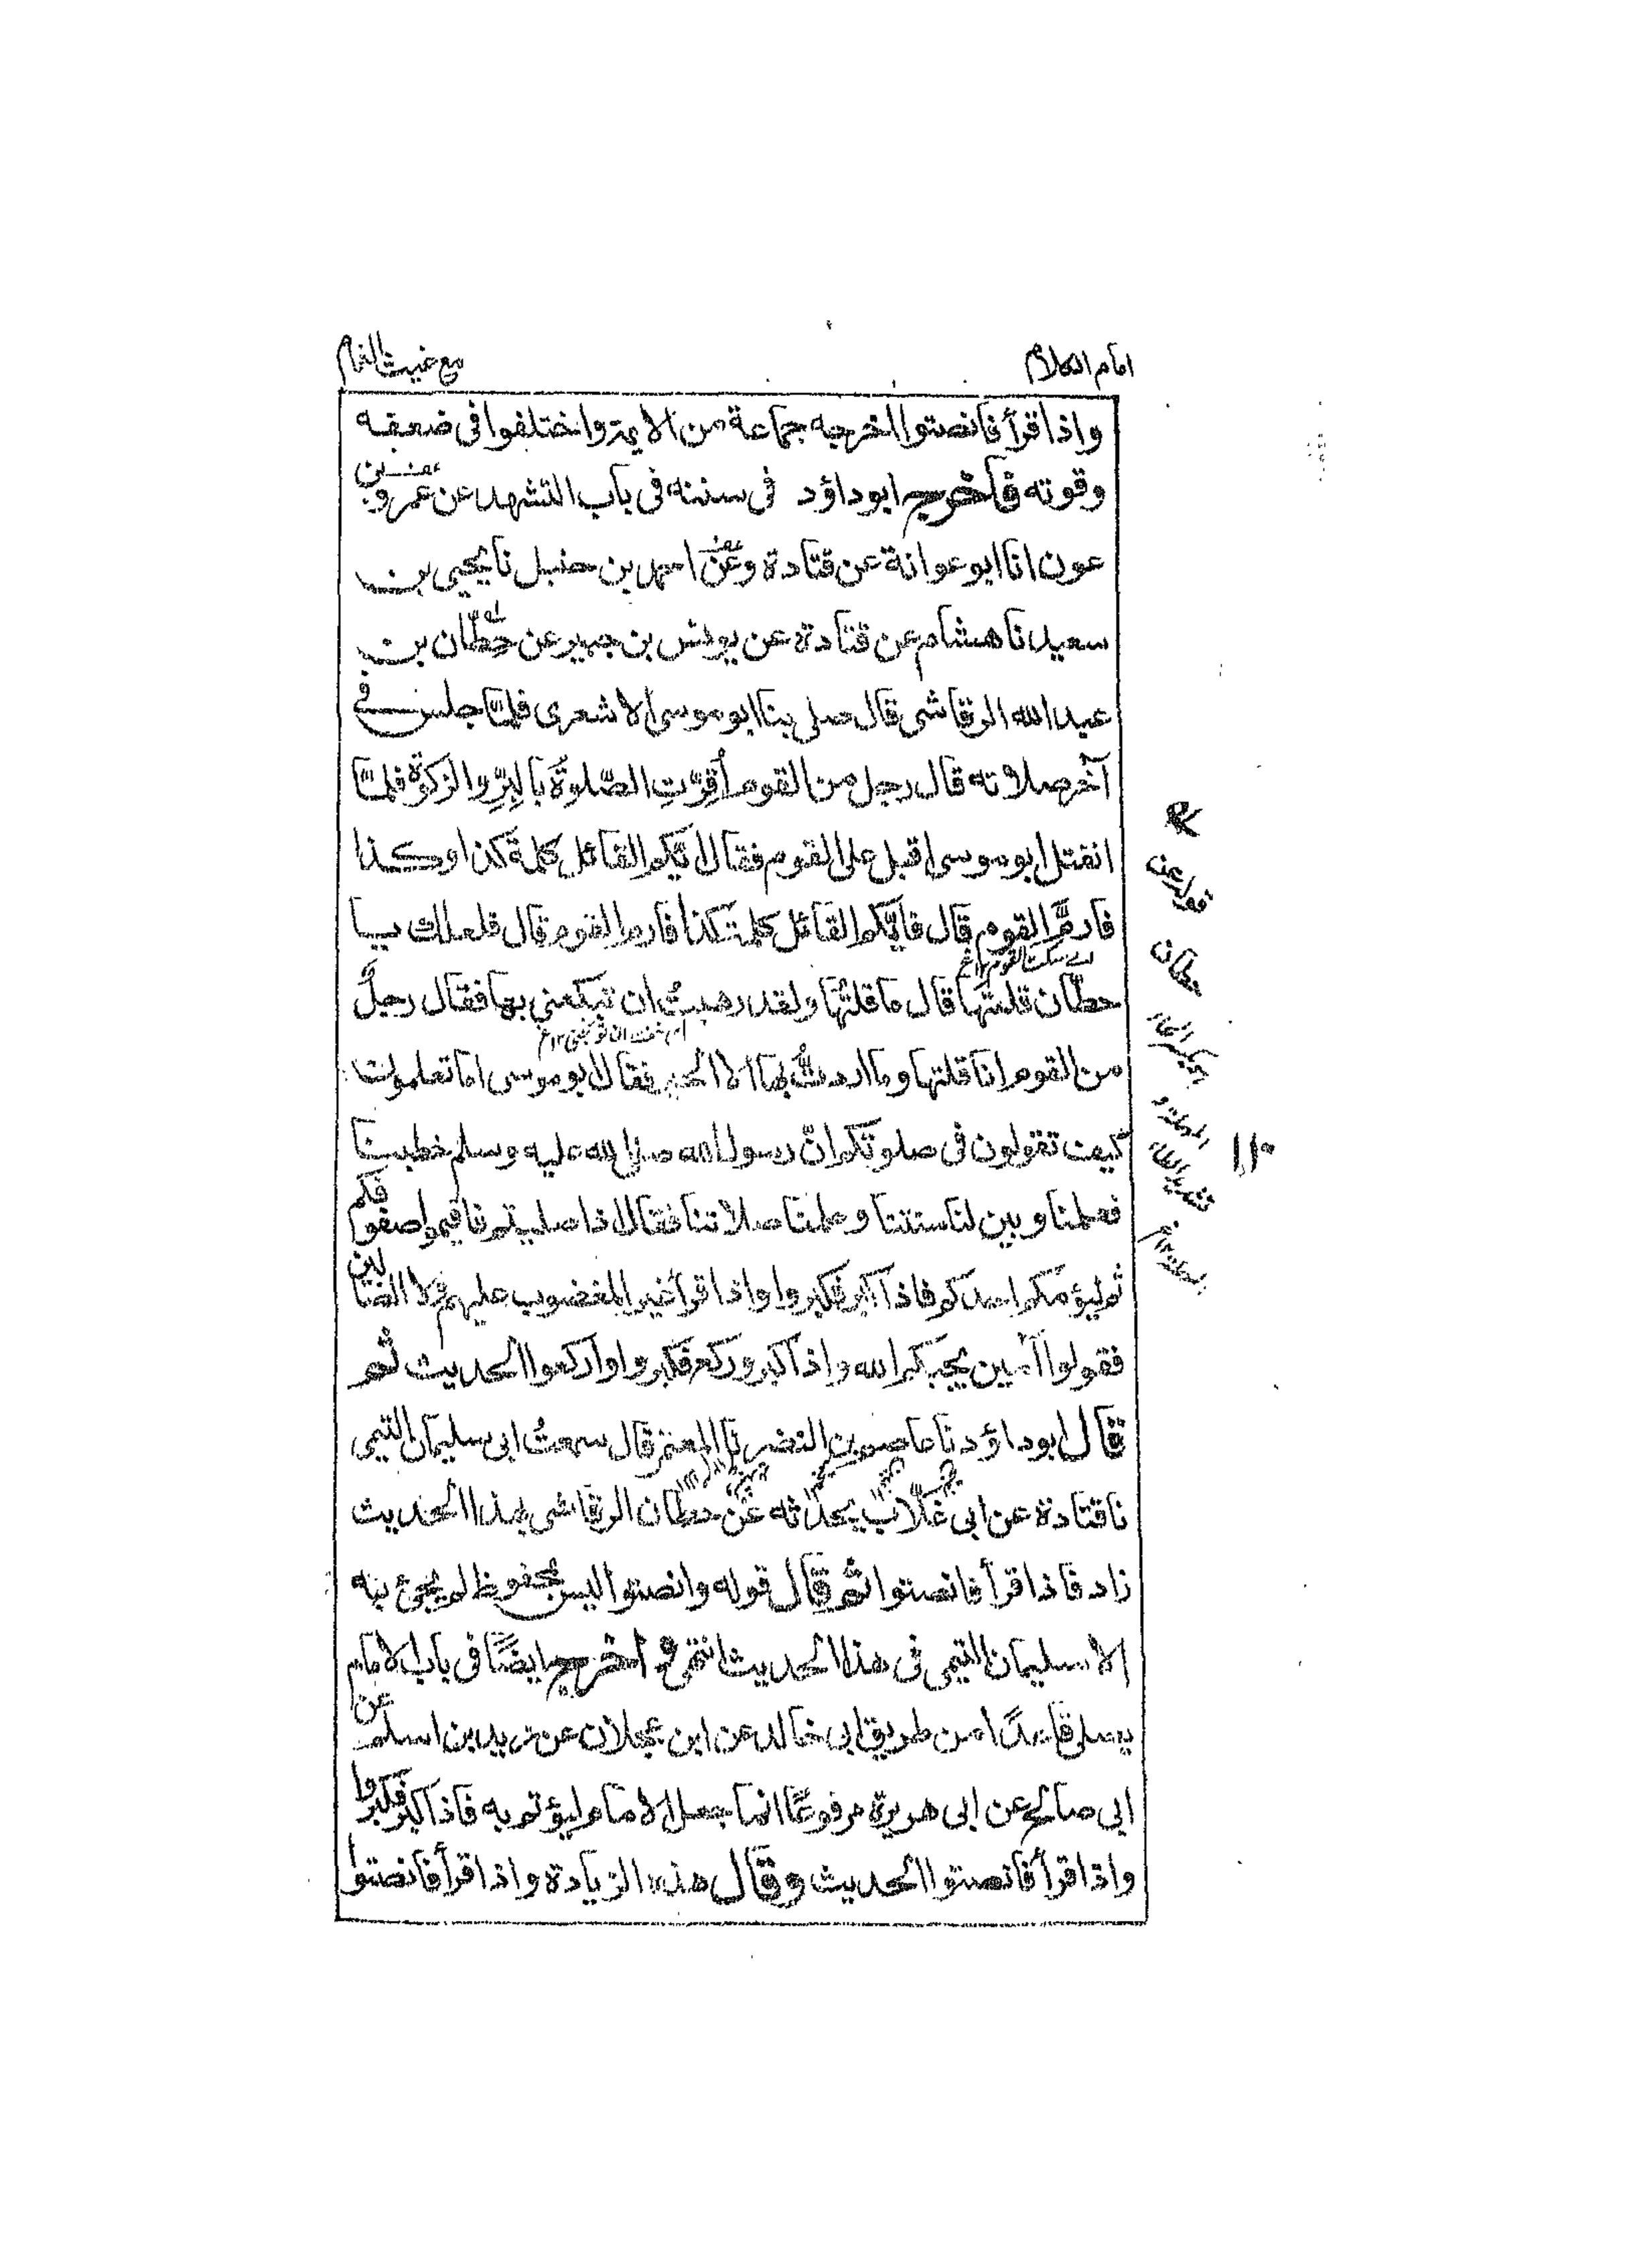 امام الكلام
مع غيث الغمام
واذا قرأ فانصتوا اخرجه جماعة من الايمة واختلفوا فى ضعفه
وقوته فاخرج ابوداؤد فى سننه فى باب التشهد عن عمرو بن
عون انا ابوعوانة عن قتادة وعن احمد بن حنبل نا يحيى بن
سعيد نا هشام عن قتادة عن يونس بن جبير عن حِطّان بن
عبد الله الرقاشى قال صلى بنا ابوموسى الاشعرى فلمّا جلس فى
آخر صلاته قال رجل من القوم أُقِرَّتِ الصّلوةُ بالبِرِّ والزكوة فلمّا
انفتل ابوموسى اقبل على القوم فقال ايّكم القائل كلمة كذا وكذا
فارمَّ القوم قال فايّكم القائل كلمة كذا فارم القوم قال فلعلك يا
اے سكت القوم ١٢ غ
حطّان قلتَها قال ما قلتُها ولقد رهبتُ ان تبكعنى بها فقال رجلٌ
من القوم انا قلتها وما اردتُّ بها الا الخير فقال ابوموسى اما تعلمون
كيف تقولون فى صلوتكم انّ رسول الله صلى الله عليه وسلم خطبنا
فعلمنا وبين لنا سنتنا وعلمنا صلاتنا فقال اذا صليتم فاقيموا صفوفكم
ثم ليؤمكم احدكم فاذا كبر فكبروا واذا قرأ غير المغضوب عليهم ولا الضالين
فقولوا آمين يحبكم الله واذا كبر وركع فكبروا واركعوا الحديث ثم
قال ابوداؤد نا عاصم بن النضر نا المعتمر قال سمعتُ ابى سليمان التيمى
نا قتادة عن ابى غلّاب يحدثه عن حطان الرقاشى بهذا الحديث
زاد فاذا قرأ فانصتوا ثم قال قوله وانصتوا ليس بمحفوظ لم يجئ به
الا سليمان التيمى فى هذا الحديث انتهى واخرج ايضًا فى باب الامام
يصلى قاعدًا من طريق ابى خالد عن ابن عجلان عن زيد بن اسلم عن
ابى صالح عن ابى هريرة مرفوعًا انما جعل الامام ليؤتم به فاذا كبر فكبروا
واذا قرأ فانصتوا الحديث وقال هذه الزيادة واذا قرأ فانصتوا
قوله عن
حطان
١١٠